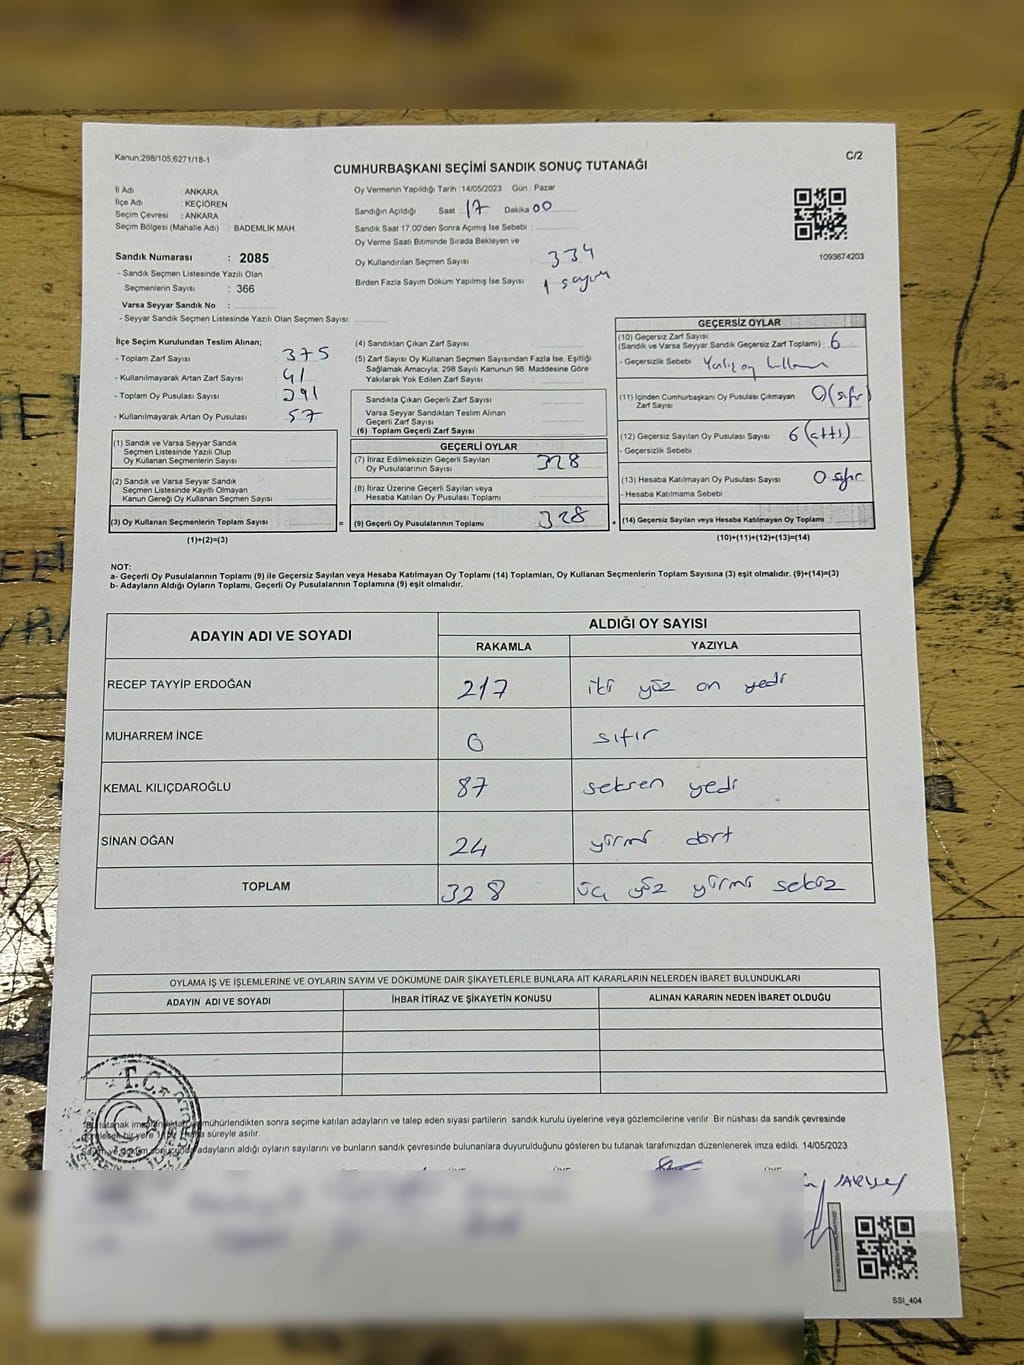 Kanun;298/105;6271/18-1
C/2
CUMHURBAŞKANI SEÇİMİ SANDIK SONUÇ TUTANAĞI
İl Adı : ANKARA
İlçe Adı : KEÇİÖREN
Seçim Çevresi : ANKARA
Seçim Bölgesi (Mahalle Adı) : BADEMLİK MAH.
Sandık Numarası : 2085
- Sandık Seçmen Listesinde Yazılı Olan
Seçmenlerin Sayısı : 366
Varsa Seyyar Sandık No :
- Seyyar Sandık Seçmen Listesinde Yazılı Olan Seçmen Sayısı:
Oy Vermenin Yapıldığı Tarih : 14/05/2023 Gün : Pazar
Sandığın Açıldığı Saat 17 Dakika 00
Sandık Saat 17.00'den Sonra Açımış İse Sebebi :
Oy Verme Saati Bitiminde Sırada Bekleyen ve
Oy Kullandırılan Seçmen Sayısı 334
Birden Fazla Sayım Döküm Yapılmış İse Sayısı 1 sayım
1093674203
İlçe Seçim Kurulundan Teslim Alınan;
- Toplam Zarf Sayısı 375
- Kullanılmayarak Artan Zarf Sayısı 41
- Toplam Oy Pusulası Sayısı 291
- Kullanılmayarak Artan Oy Pusulası 57
(1) Sandık ve Varsa Seyyar Sandık
Seçmen Listesinde Yazılı Olup
Oy Kullanan Seçmenlerin Sayısı
(2) Sandık ve Varsa Seyyar Sandık
Seçmen Listesinde Kayıtlı Olmayan
Kanun Gereği Oy Kullanan Seçmen Sayısı
(3) Oy Kullanan Seçmenlerin Toplam Sayısı
(1)+(2)=(3)
(4) Sandıktan Çıkan Zarf Sayısı
(5) Zarf Sayısı Oy Kullanan Seçmen Sayısından Fazla İse, Eşitliği
Sağlamak Amacıyla, 298 Sayılı Kanunun 98. Maddesine Göre
Yakılarak Yok Edilen Zarf Sayısı
Sandıkta Çıkan Geçerli Zarf Sayısı
Varsa Seyyar Sandıktan Teslim Alınan
Geçerli Zarf Sayısı
(6) Toplam Geçerli Zarf Sayısı
GEÇERLİ OYLAR
(7) İtiraz Edilmeksizin Geçerli Sayılan
Oy Pusulalarının Sayısı 328
(8) İtiraz Üzerine Geçerli Sayılan veya
Hesaba Katılan Oy Pusulası Toplamı
= (9) Geçerli Oy Pusulalarının Toplamı 328
GEÇERSİZ OYLAR
(10) Geçersiz Zarf Sayısı
(Sandık ve Varsa Seyyar Sandık Geçersiz Zarf Toplamı) : 6
- Geçersizlik Sebebi : Yanlış oy
(11) İçinden Cumhurbaşkanı Oy Pusulası Çıkmayan
Zarf Sayısı 0 (sıfır)
(12) Geçersiz Sayılan Oy Pusulası Sayısı 6 (altı)
- Geçersizlik Sebebi :
(13) Hesaba Katılmayan Oy Pusulası Sayısı 0 sıfır
- Hesaba Katılmama Sebebi :
(14) Geçersiz Sayılan veya Hesaba Katılmayan Oy Toplamı
(10)+(11)+(12)+(13)=(14)
NOT:
a- Geçerli Oy Pusulalarının Toplamı (9) ile Geçersiz Sayılan veya Hesaba Katılmayan Oy Toplamı (14) Toplamları, Oy Kullanan Seçmenlerin Toplam Sayısına (3) eşit olmalıdır. (9)+(14)=(3)
b- Adayların Aldığı Oyların Toplamı, Geçerli Oy Pusulalarının Toplamına (9) eşit olmalıdır.
ADAYIN ADI VE SOYADI
ALDIĞI OY SAYISI
RAKAMLA YAZIYLA
RECEP TAYYİP ERDOĞAN 217 iki yüz on yedi
MUHARREM İNCE 0 sıfır
KEMAL KILIÇDAROĞLU 87 seksen yedi
SİNAN OĞAN 24 yirmi dört
TOPLAM 328 üç yüz yirmi sekiz
OYLAMA İŞ VE İŞLEMLERİNE VE OYLARIN SAYIM VE DÖKÜMÜNE DAİR ŞİKAYETLERLE BUNLARA AİT KARARLARIN NELERDEN İBARET BULUNDUKLARI
ADAYIN ADI VE SOYADI İHBAR İTİRAZ VE ŞİKAYETİN KONUSU ALINAN KARARIN NEDEN İBARET OLDUĞU
T.C.
mühürlendikten sonra seçime katılan adayların ve talep eden siyasi partilerin sandık kurulu üyelerine veya gözlemcilerine verilir. Bir nüshası da sandık çevresinde
süreyle asılır.
adayların aldığı oyların sayılarını ve bunların sandık çevresinde bulunanlara duyurulduğunu gösteren bu tutanak tarafımızdan düzenlenerek imza edildi. 14/05/2023
SSI_404